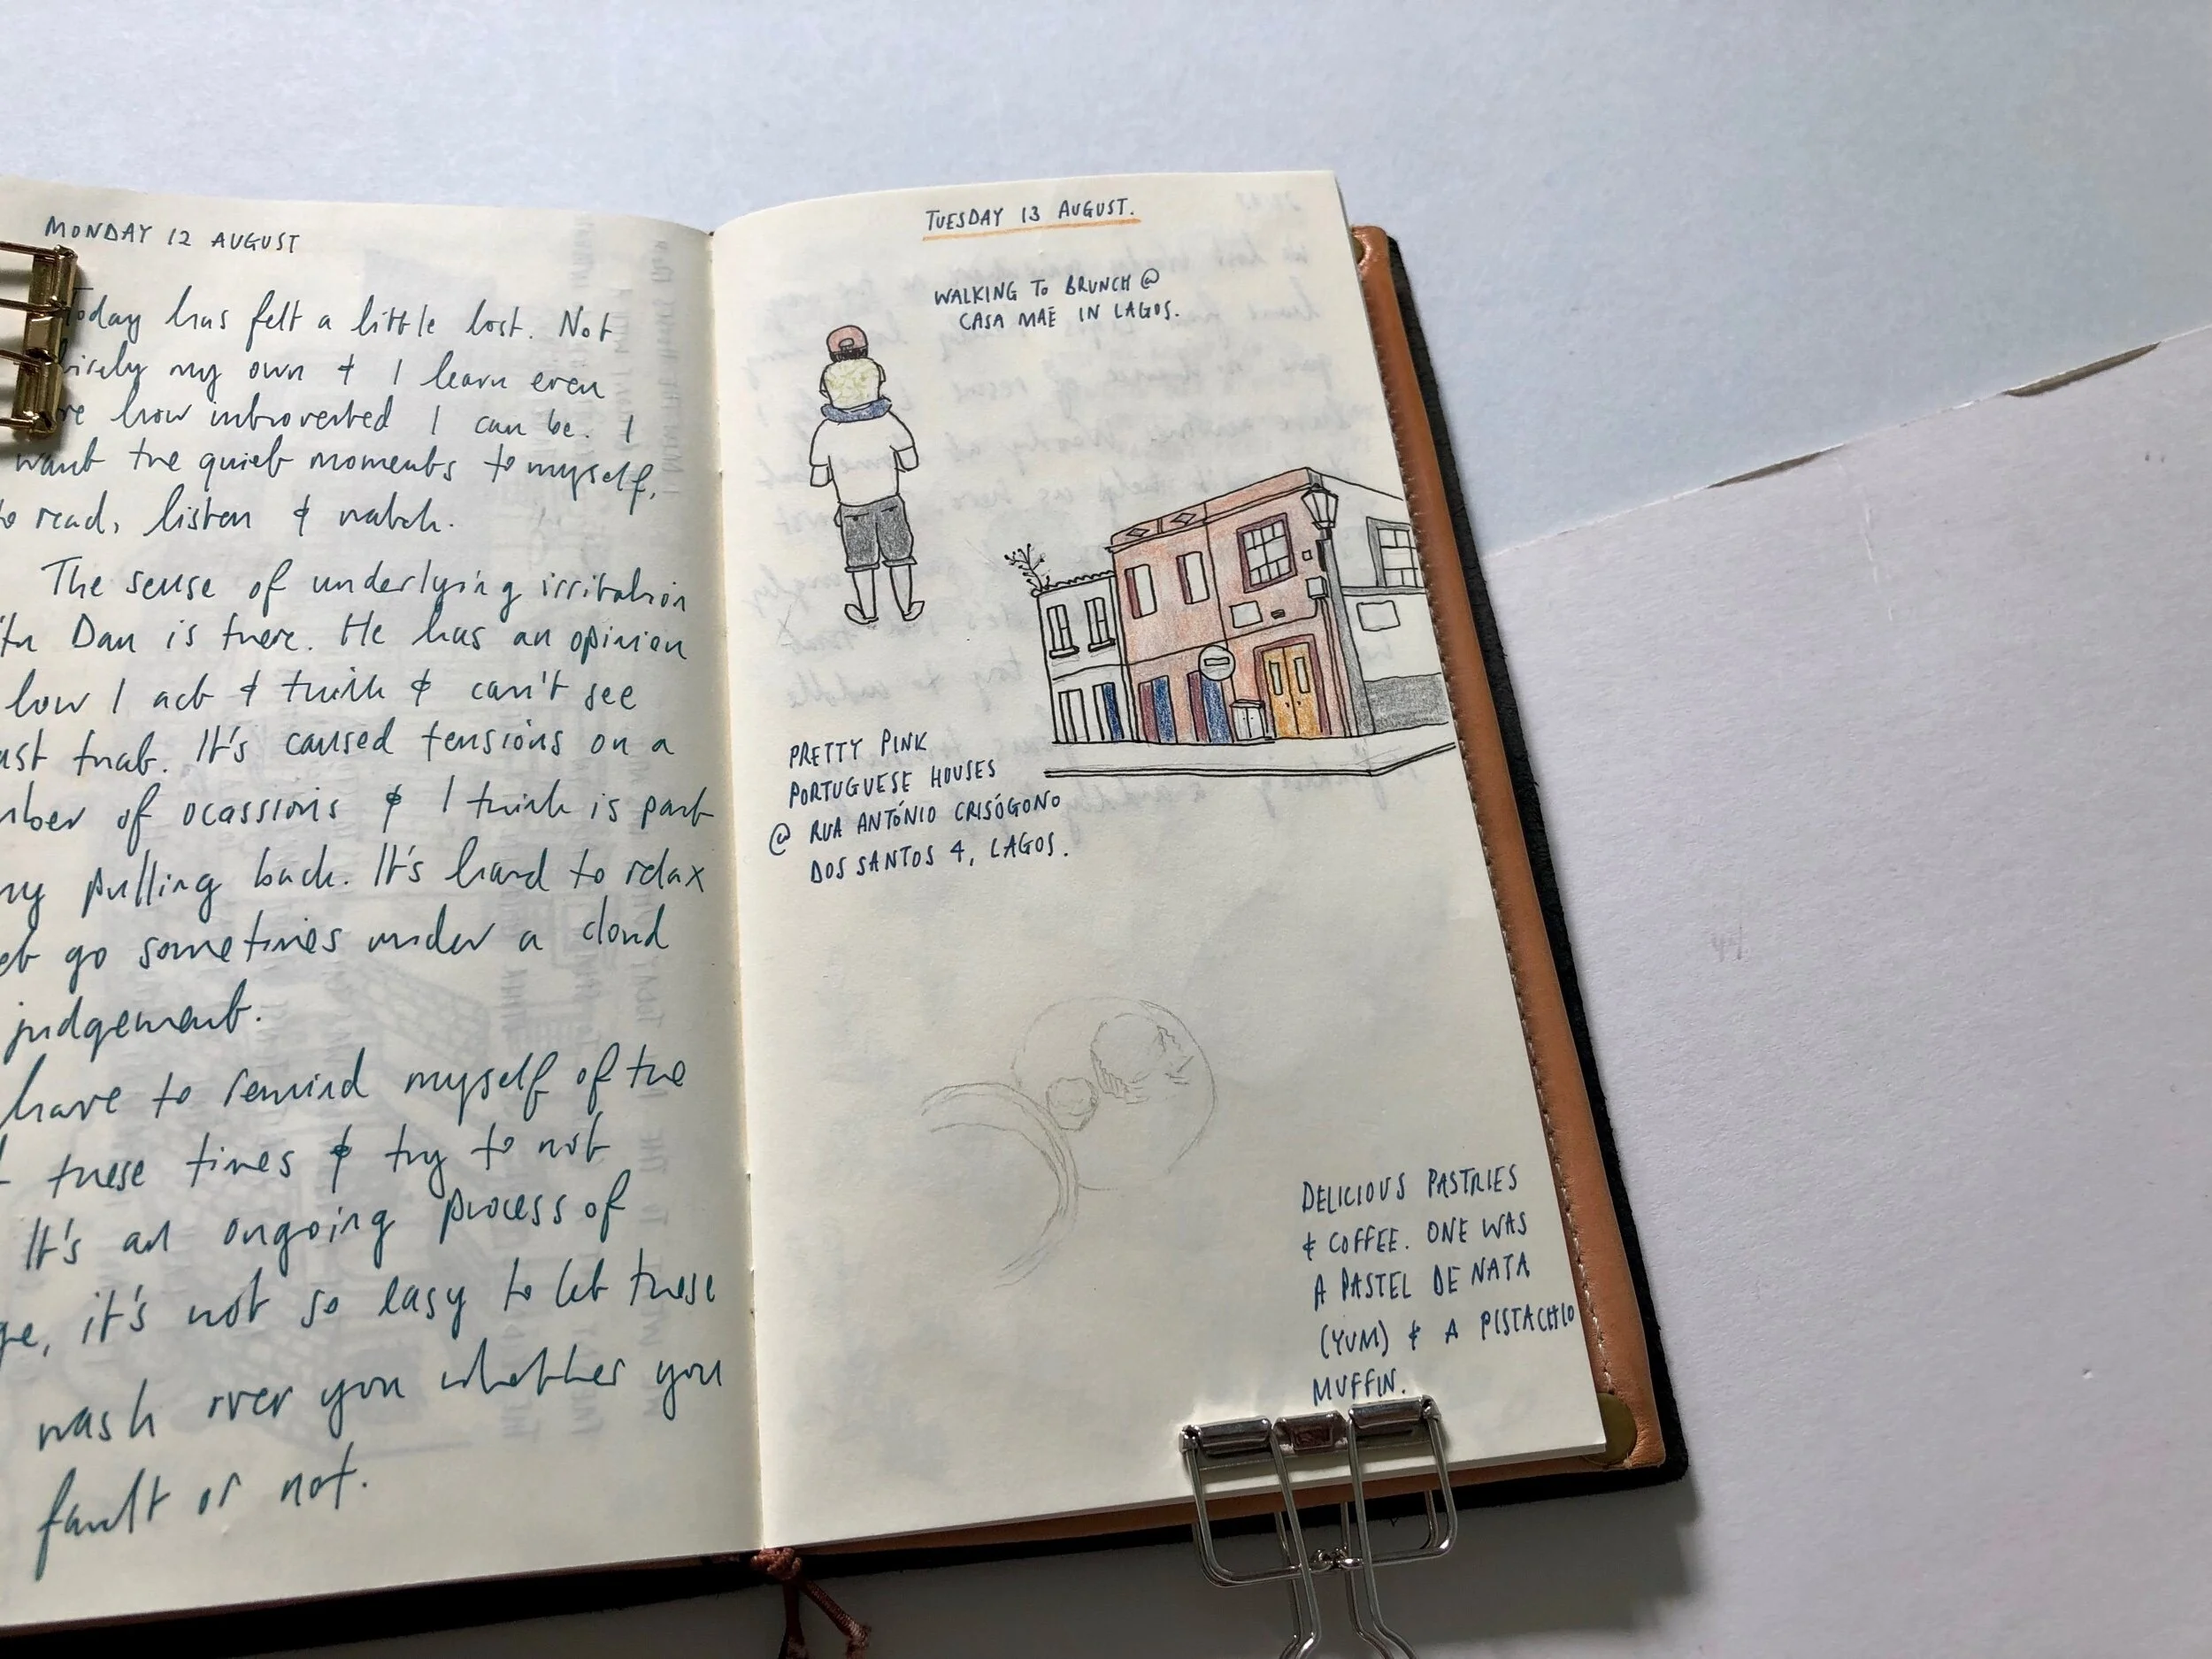 MONDAY 12 AUGUST
Today has felt a little lost. Not
my own & I learn even
how introverted I can be. I
want the quiet moments to myself,
to read, listen & watch.
The sense of underlying irritation
Dan is there. He has an opinion
how I act & think & can't see
that. It's caused tensions on a
of ocassions & I think is part
my pulling back. It's hard to relax
go sometimes under a cloud
judgement.
have to remind myself of the
these times & try to not
It's an ongoing process of
it's not so easy to let these
wash over you whether you
fault or not.
TUESDAY 13 AUGUST.
WALKING TO BRUNCH @
CASA MAE IN LAGOS.
PRETTY PINK
PORTUGUESE HOUSES
@ RUA ANTÓNIO CRISÓGONO
DOS SANTOS 4, LAGOS.
DELICIOUS PASTRIES
& COFFEE. ONE WAS
A PASTEL DE NATA
(YUM) & A PISTACHIO
MUFFIN.